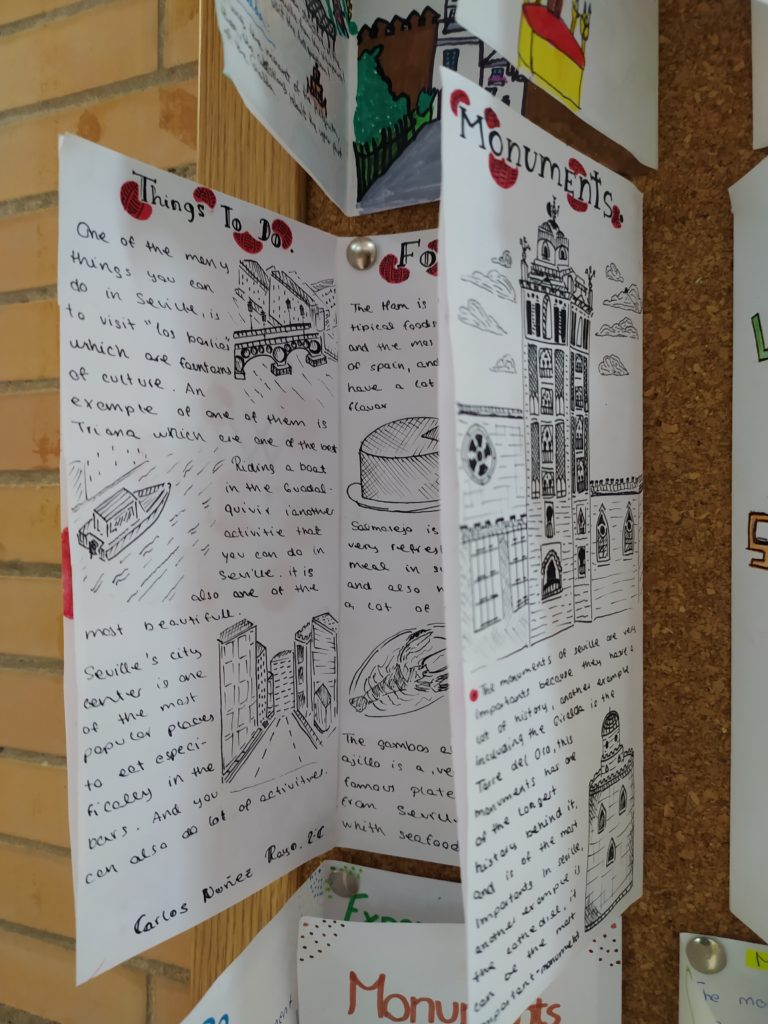 Things To Do.
One of the many
things you can
do in Seville, is
to visit "los barlios"
which are fountains
of culture. An
example of one of them is
Triana which are one of the best
Riding a boat
in the Guadal-
quivir ianother
activitie that
you can do in
Seville. it is
also one of the
most beautifull.
Seville's city
center is one
of the most
popular places
to eat especi-
fically in the
bars. And you
can also do lot of activitres.
Carlos Nuñez Rayo. 2ºC
Fo
The Ham is
tipical foods
and the mos
of spain, and
have a lot
flavor
Salmorejo is
very refresh
meal in su
and also
a lot of
The gambas a
ajillo is a ve
famous plate
from Sevill
whith seafood
Monuments.
The monuments of seville are very
importants because they have a
lot of history, another example
including the Giralda is the
Torre del Oro, this
monuments has one
of the longest
history behind it,
and is of the most
importants in seville,
another example is
the cathedral. it
can be the most
important-monument
Monuments